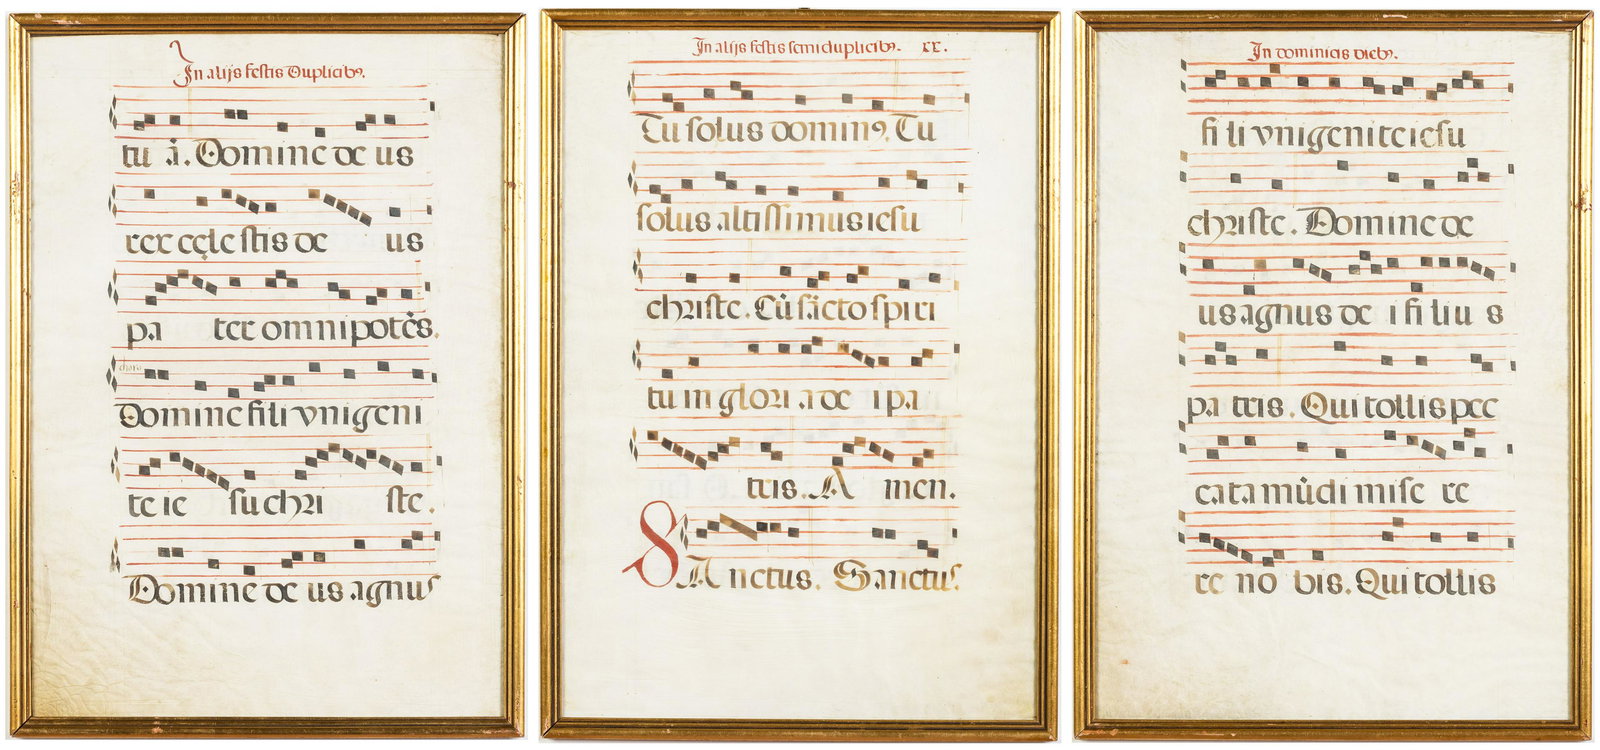 In alijs festis Duplicibꝯ.
tu ā. Domine de us
rex cęle stis de us
pa ter omnipotēs.
choro
Domine fili vnigeni
te ie su chri ste.
Domine de us agnus
In alijs festis semiduplicibꝯ. xx.
Tu solus dominꝯ. Tu
solus altissimus iesu
christe. Cū sācto spiri
tu in glori a de i pa
tris. A men.
SAnctus. Sanctus.
In dominicis diebꝯ.
fi li vnigenite iesu
christe. Domine de
us agnus de i fi liu s
pa tris. Qui tollis pec
cata mūdi mise re
re no bis. Qui tollis